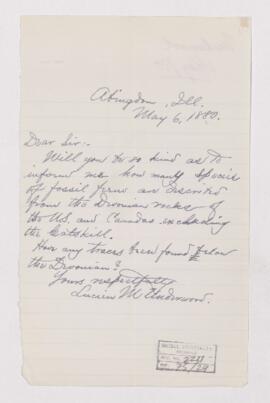 Abingdon, Ill.
May 6, 1880.
Dear Sir:-
Will you be so kind as to
inform me how many species
of fossil ferns are described
from the Devonian rocks of
the U.S. and Canadas excluding
the Catskill.
Have any traces been found below
the Devonian?
Yours respectfully
Lucien M Underwood.